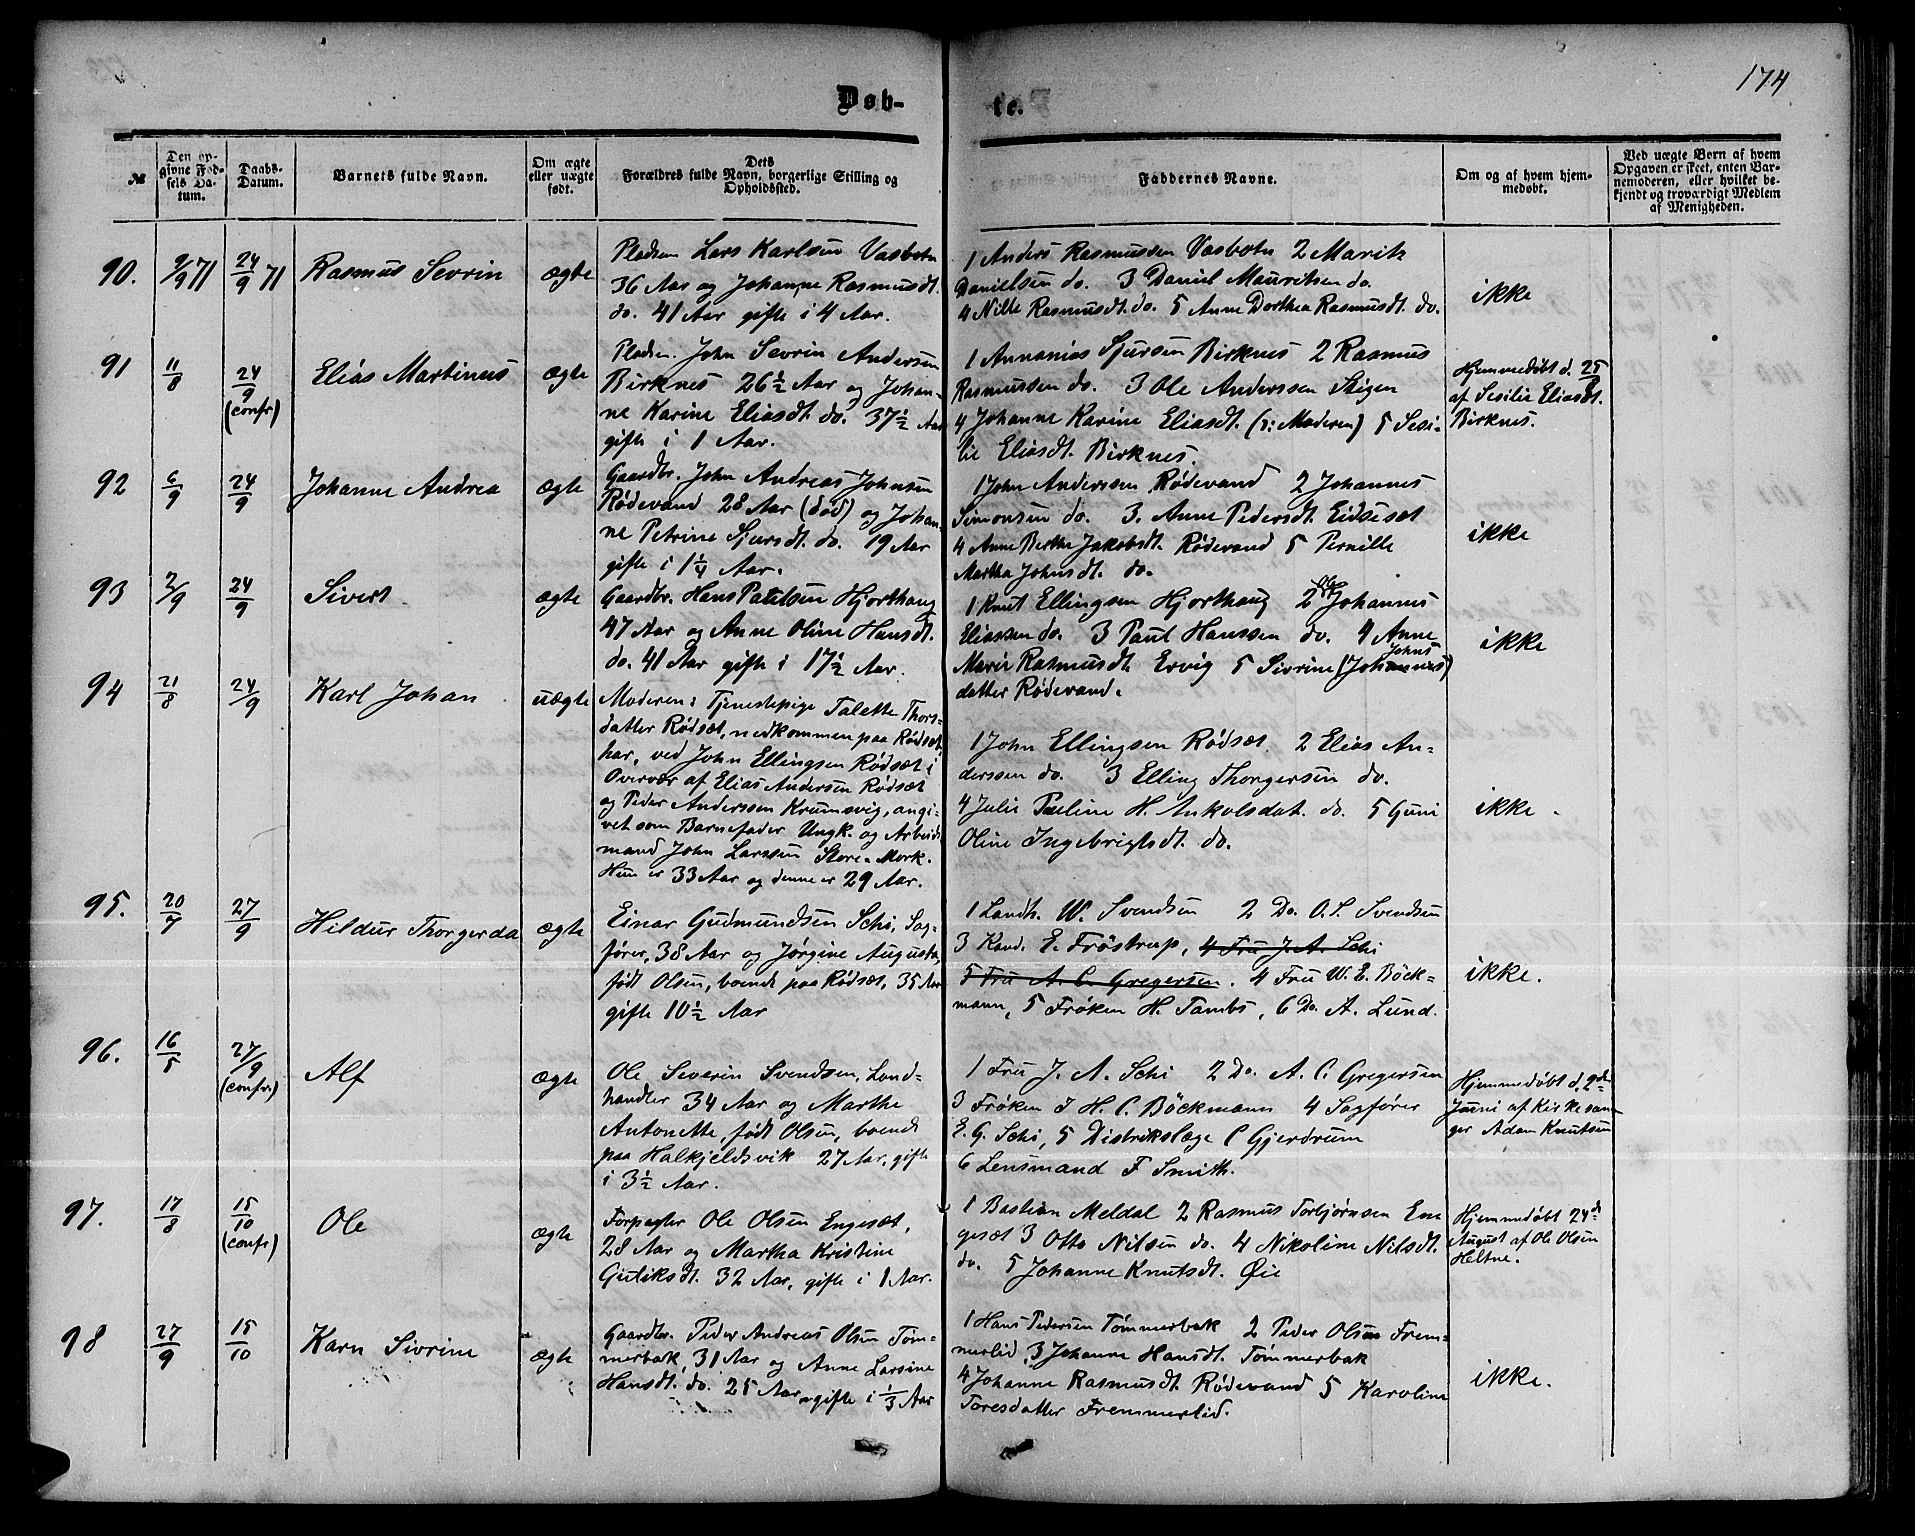 174
Døb-
te.
№
Den op-
givne Fød-
sels Da-
tum.
Daabs-
Datum.
Barnets fulde Navn.
Om ægte
eller uægte
født.
Dets
Forældres fulde Navn, borgerlige Stilling og
Opholdssted.
Faddernes Navne.
Om og af hvem hjem-
medøbt.
Ved uægte Børn af hvem
Opgaven er skeet, enten Bar-
nemoderen, eller hvilket be-
kjendt og troværdigt Medlem
af Menigheden.
90.
9/9 71
24/9 71
Rasmus Sevrin
ægte
Pladsm. Lars Karlsen Vasbotn
36 Aar og Johanne Rasmusdt.
do. 41 Aar gifte i 4 Aar.
1 Anders Rasmussen Vasbotn 2 Marit
Danielsen do. 3 Daniel Mauritsen do.
4 Nille Rasmusdt. do. 5 Anne Dorthea Rasmusdt. do.
ikke
91
11/8
24/9
(confr)
Elias Martinus
ægte
Pladsm. John Sevrin Andersen
Birknes 26 1/2 Aar og Johan-
ne Karine Eliasdt. do. 37 1/2 Aar
gifte i 1 Aar.
1 Annanias Sjursen Birknes 2 Rasmus
Rasmussen do. 3 Ole Anderssen Stigen
4 Johanne Karine Eliasdt. (ɔ: Moderen) 5 Sesi-
lie Eliasdt. Birknes.
Hjemmedøbt d. 25/8
af Sesilie Eliasdt.
Birknes.
92
6/9
24/9
Johanne Andrea
ægte
Gaardbr. John Andreas Johnsen
Rødevand 28 Aar (død) og Johan-
ne Petrine Sjursdt. do. 19 Aar
gifte i 1 1/4 Aar.
1 John Anderssen Rødevand 2 Johannes
Simonsen do. 3. Anne Pedersdt. Eidseset
4 Anne Berthe Jakobsdt. Rødevand 5 Pernille
Martha Johnsdt. do.
ikke
93
2/9
24/9
Sivert
ægte
Gaardbr. Hans Paulsen Hjorthaug
47 Aar og Anne Oline Hansdt.
do. 41 Aar gifte i 17 1/2 Aar.
1 Knut Ellingsen Hjorthaug 2 Johannes
Eliassen do. 3 Paul Hanssen do. 4 Anne
Marie Rasmusdt. Ervig 5 Sivrine (Johannes) Johns
datter Rødevand.
ikke
94
21/8
24/9
Karl Johan
uægte
Moderen: Tjenestepige Talette Thors-
datter Rødsæt, nedkommen paa Rødsæt
har, ved John Ellingsen Rødsæt i
Overvær af Elias Andersen Rødsæt
og Peder Anderssen Krumsvig, angi-
vet som Barnefader Ungk. og Arbeids
mand John Larssen Store-Mork.
Hun er 33 Aar og denne er 29 Aar.
1 John Ellingsen Rødsæt. 2 Elias An-
derssen do. 3 Elling Thorgersen do.
4 Julie Pauline H. Ankolsdat. do. 5 Guni
Oline Ingebrigtsdt. do.
ikke.
95.
20/7
27/9
Hildur Thorgerda
ægte
Einar Gudmundsen Schi, Sag-
fører, 38 Aar og Jørgine Augusta,
født Olsen, boende paa Rødsæt, 35 Aar
gifte 10 1/2 Aar
1 Landh. W. Svendsen 2 Do. O. S. Svendsen
3 Kand. E. Fröstrup, 4 Fru J. A. Schi
5 Fru A. C. Gregersen. 4 Fru W. E. Böck-
mann, 5 Frøken H. Tambs, 6 Do. A. Lund.
ikke.
96.
16/5
27/9
(confr.)
Alf
ægte
Ole Severin Svendsen, Land-
handler 34 Aar og Marthe
Antonette, født Olsen, boende
paa Halkjeldsvik 27 Aar, gifte
i 3 1/2 Aar.
1 Fru J. A. Schi 2 Do. A. C. Gregersen
3 Frøken J H. C. Böckmann 4 Sagfører
E. G. Schi, 5 Distrikslæge C Gjerdrum
6 Lensmand F Smith.
Hjemmedøbt d. 2den
Juni af Kirkesan-
ger Adam Knutsen
97.
17/8
15/10
(confr)
Ole
ægte
Forpagter Ole Olsen Engesæt,
28 Aar og Martha Kristine
Gutiksdt. 32 Aar, gifte i 1 Aar.
1 Bastian Meldal 2 Rasmus Torbjørnsen En-
gesæt 3 Otto Nilsen do. 4 Nikoline Nilsdt.
do. 5 Johanne Knutsdt. Øie
Hjemmedøbt 24de
August af Ole Olsen
Heltne.
98
27/9
15/10
Karn Sivrine
ægte
Gaardbr. Peder Andreas Olsen Tøm-
merbak, 31 Aar og Anne Larsine
Hansdt. do. 25 Aar, gifte i 1/3 Aar
1 Hans Pedersen Tømmerbak 2 Peder Olsen Frem-
merlid, 3 Johanne Hansdt. Tømmerbak
4 Johanne Rasmusdt. Rødevand 5 Karoline
Toresdatter Fremmerlid.
ikke.